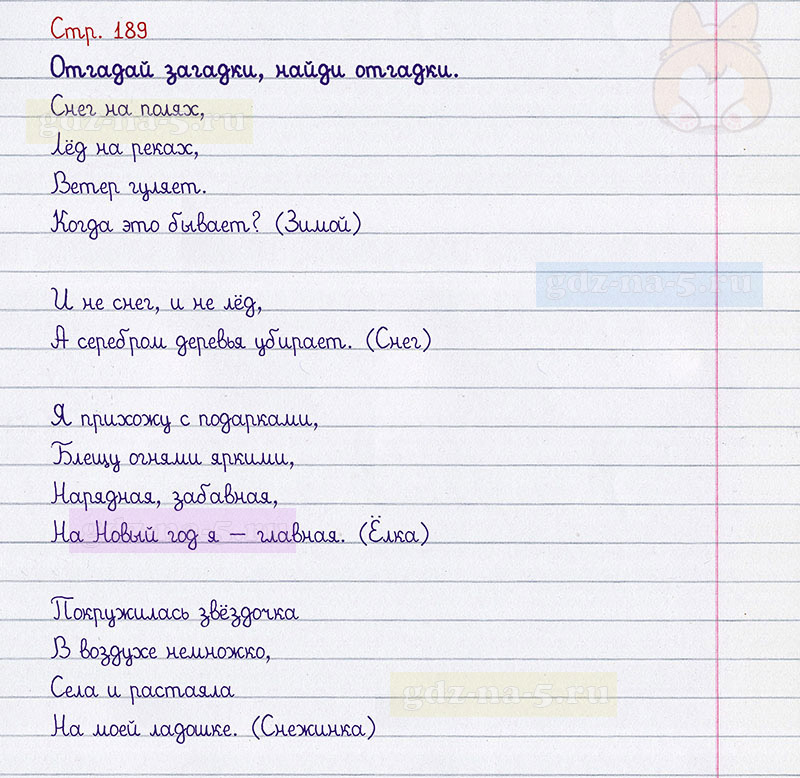 Стр. 189
Отгадай загадки, найди отгадки.
Снег на полях,
gdz-na-5.ru
Лёд на реках,
Ветер гуляет.
Когда это бывает? (Зимой)
gdz-na-5.ru
И не снег, и не лёд,
А серебром деревья убирает. (Снег)
Я прихожу с подарками,
Блещу огнями яркими,
Нарядная, забавная,
На Новый год я – главная. (Ёлка)
Покружилась звёздочка
В воздухе немножко,
Села и растаяла
gdz-na-5.ru
На моей ладошке. (Снежинка)